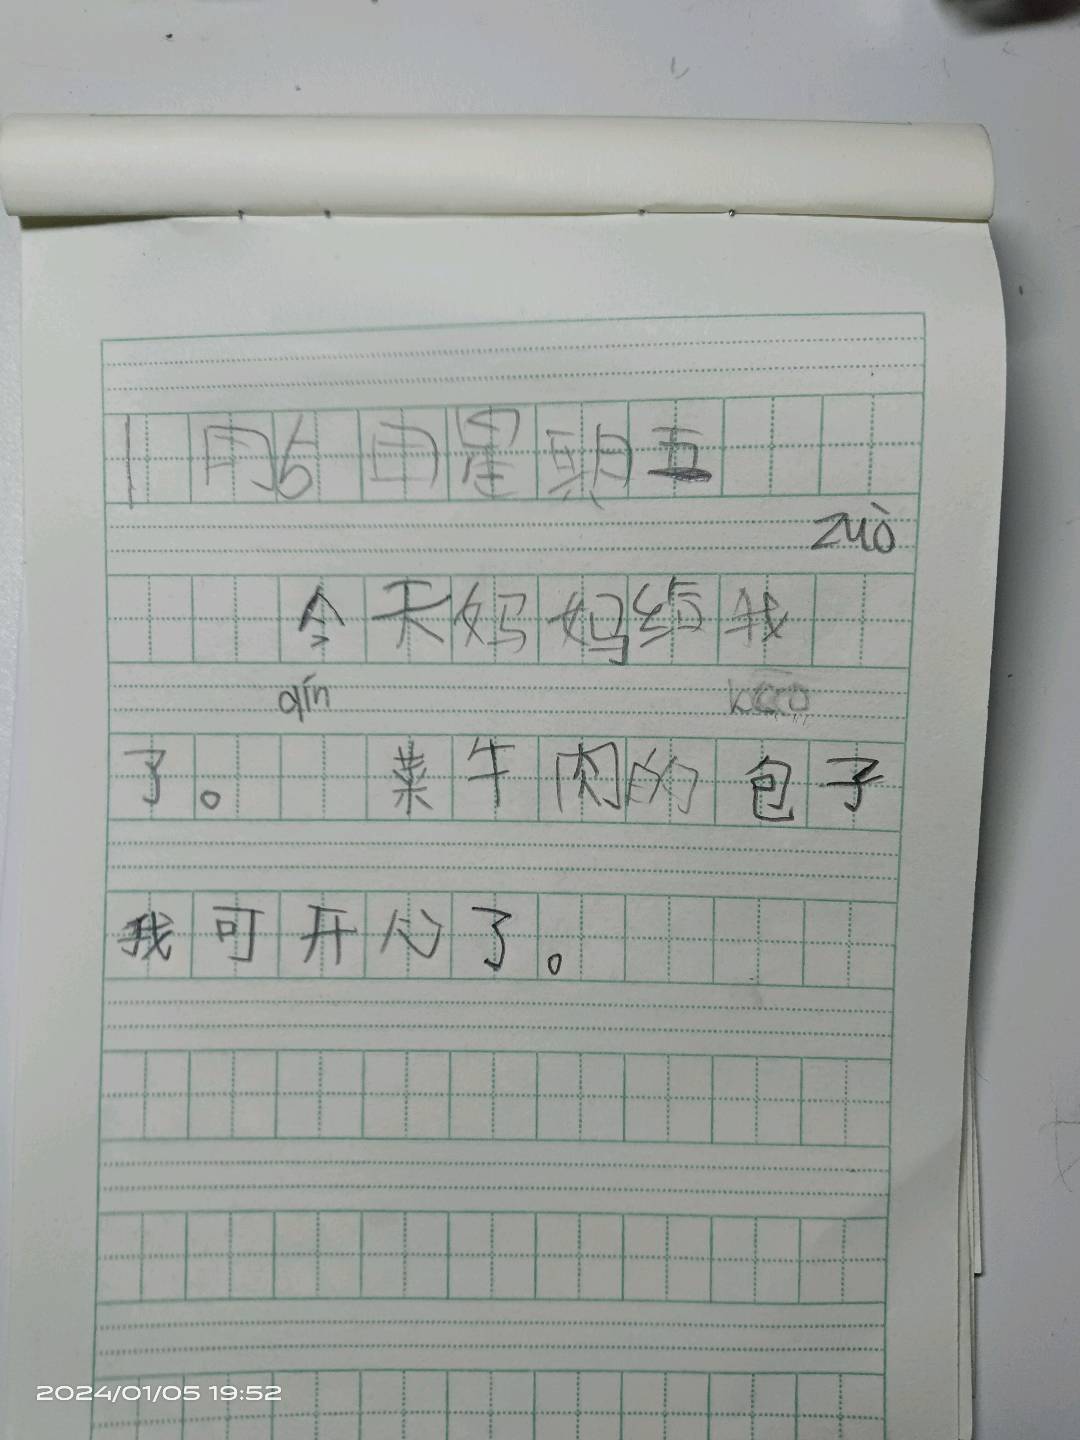 1月6日星期五
zuò
今天妈妈给我
qín bāo
了。芹菜牛肉的包子
我可开心了。
2024/01/05 19:52